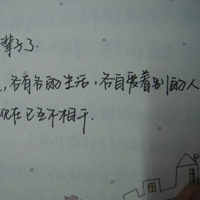 辈子了.
,各有各的生活,各自爱着别的人
现在已互不相干.